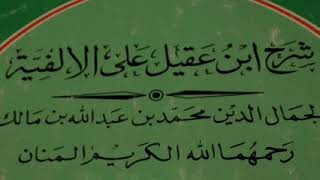 شرح ابن عقيل على الالفية
لجمال الدين محمد بن عبدالله بن مالك
رحمهما الله الكريم المنان